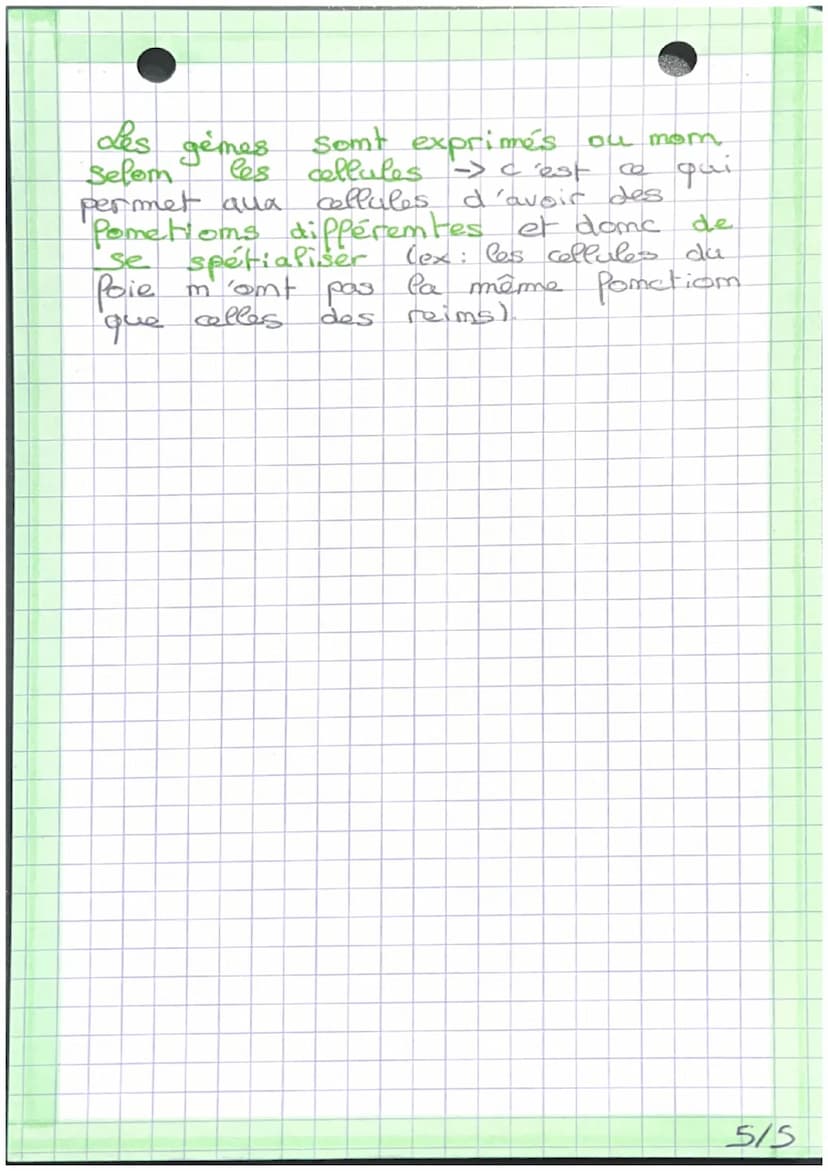 Les gènes sont exprimés ou non
selon les cellules -> c'est ce qui
permet aux cellules d'avoir des
fonctions différentes et donc de
se spétialiser (ex: les cellules du
foie n'ont pas la même fonction
que celles des reins).
5/5